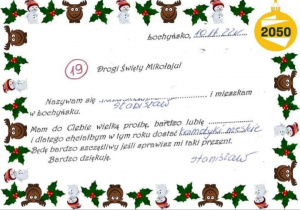 2050
Łochyńsko,
19
Drogi Święty Mikołaju!
Nazywam się Stanisław i mieszkam
w Łochyńsku.
Mam do Ciebie wielką prośbę, bardzo lubię
i dlatego chciałbym w tym roku dostać
Będę bardzo szczęśliwy jeśli sprawisz mi taki prezent.
Bardzo dziękuję. Stanisław